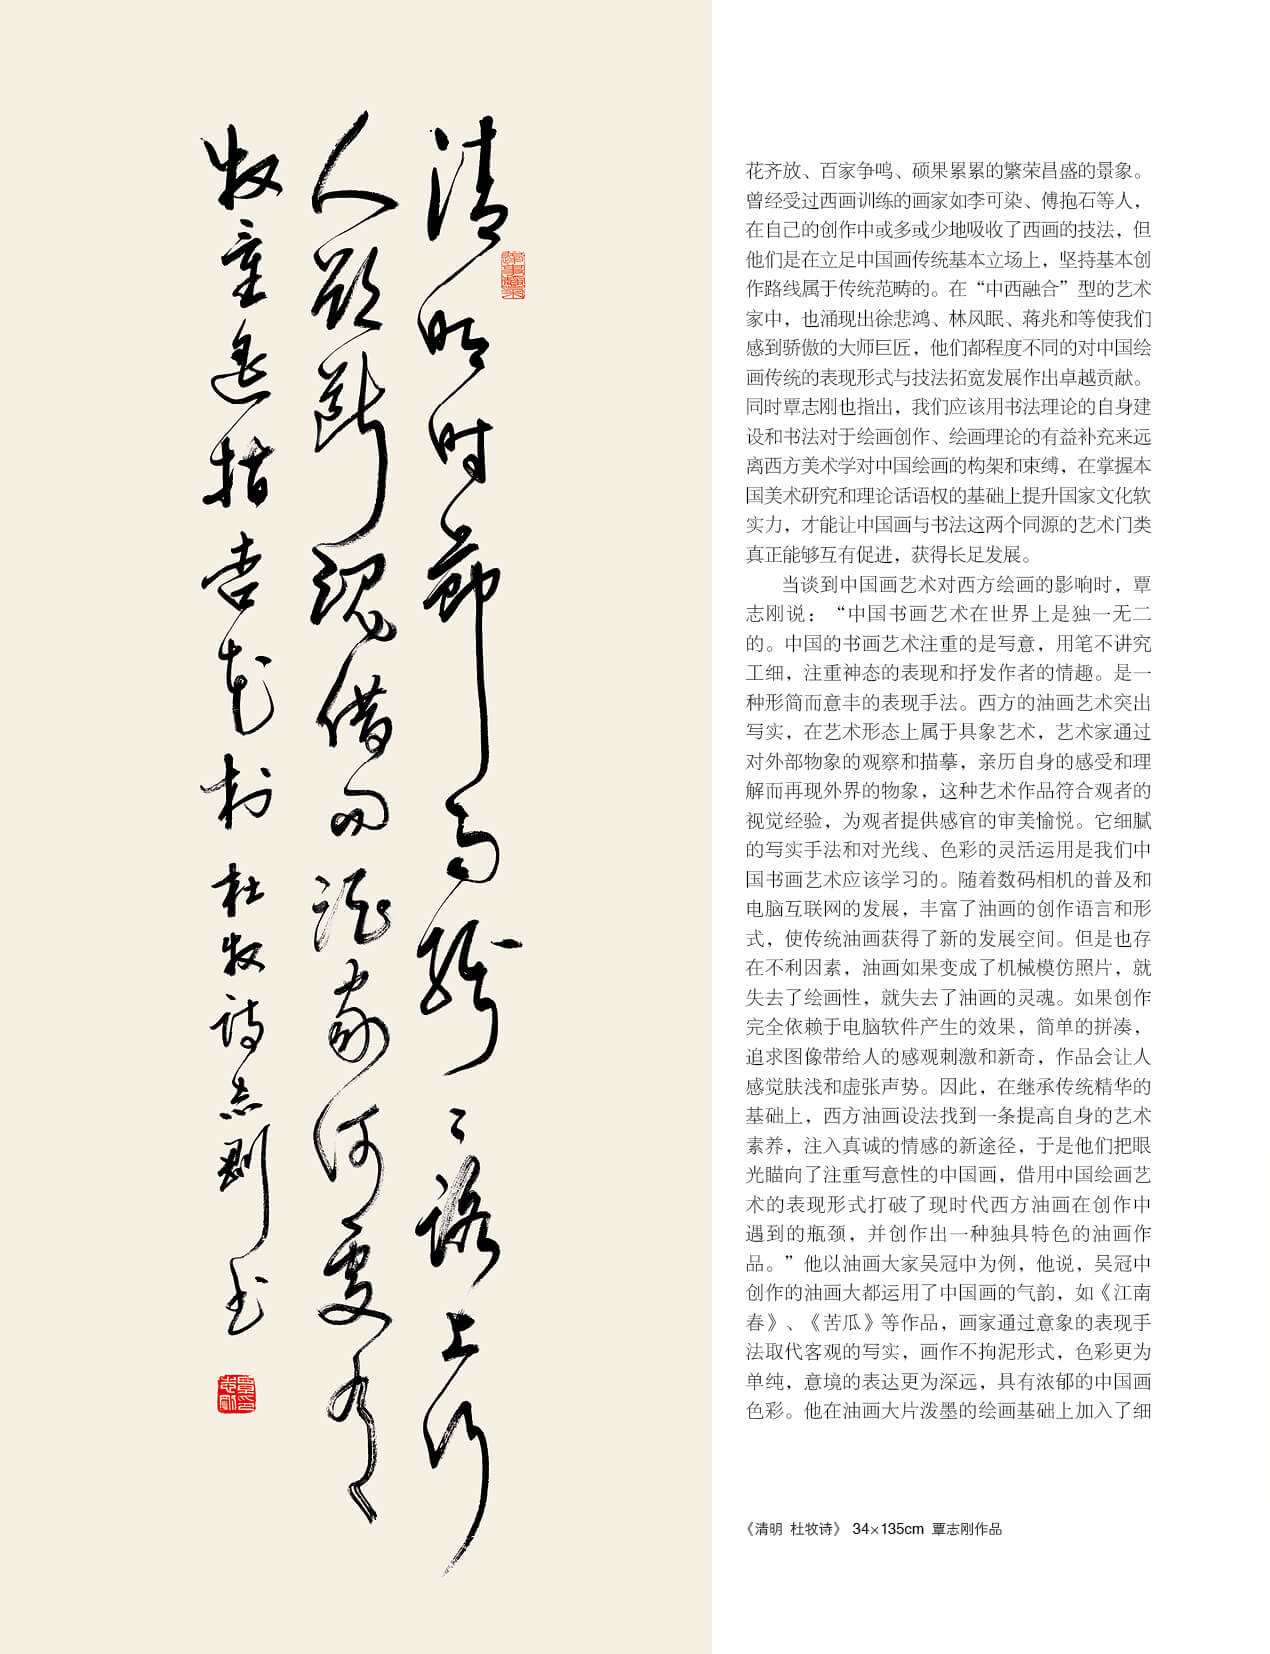 清明时节雨纷〻路上行
人欲断魂借问酒家何处有
牧童遥指杏花村 杜牧诗志刚书
花齐放、百家争鸣、硕果累累的繁荣昌盛的景象。
曾经受过西画训练的画家如李可染、傅抱石等人，
在自己的创作中或多或少地吸收了西画的技法，但
他们是在立足中国画传统基本立场上，坚持基本创
作路线属于传统范畴的。在“中西融合”型的艺术
家中，也涌现出徐悲鸿、林风眠、蒋兆和等使我们
感到骄傲的大师巨匠，他们都程度不同的对中国绘
画传统的表现形式与技法拓宽发展作出卓越贡献。
同时覃志刚也指出，我们应该用书法理论的自身建
设和书法对于绘画创作、绘画理论的有益补充来远
离西方美术学对中国绘画的构架和束缚，在掌握本
国美术研究和理论话语权的基础上提升国家文化软
实力，才能让中国画与书法这两个同源的艺术门类
真正能够互有促进，获得长足发展。
当谈到中国画艺术对西方绘画的影响时，覃
志刚说：“中国书画艺术在世界上是独一无二
的。中国的书画艺术注重的是写意，用笔不讲究
工细，注重神态的表现和抒发作者的情趣。是一
种形简而意丰的表现手法。西方的油画艺术突出
写实，在艺术形态上属于具象艺术，艺术家通过
对外部物象的观察和描摹，亲历自身的感受和理
解而再现外界的物象，这种艺术作品符合观者的
视觉经验，为观者提供感官的审美愉悦。它细腻
的写实手法和对光线、色彩的灵活运用是我们中
国书画艺术应该学习的。随着数码相机的普及和
电脑互联网的发展，丰富了油画的创作语言和形
式，使传统油画获得了新的发展空间。但是也存
在不利因素，油画如果变成了机械模仿照片，就
失去了绘画性，就失去了油画的灵魂。如果创作
完全依赖于电脑软件产生的效果，简单的拼凑，
追求图像带给人的感观刺激和新奇，作品会让人
感觉肤浅和虚张声势。因此，在继承传统精华的
基础上，西方油画设法找到一条提高自身的艺术
素养，注入真诚的情感的新途径，于是他们把眼
光瞄向了注重写意性的中国画，借用中国绘画艺
术的表现形式打破了现时代西方油画在创作中
遇到的瓶颈，并创作出一种独具特色的油画作
品。”他以油画大家吴冠中为例，他说，吴冠中
创作的油画大都运用了中国画的气韵，如《江南
春》、《苦瓜》等作品，画家通过意象的表现手
法取代客观的写实，画作不拘泥形式，色彩更为
单纯，意境的表达更为深远，具有浓郁的中国画
色彩。他在油画大片泼墨的绘画基础上加入了细
《清明 杜牧诗》 34×135cm 覃志刚作品